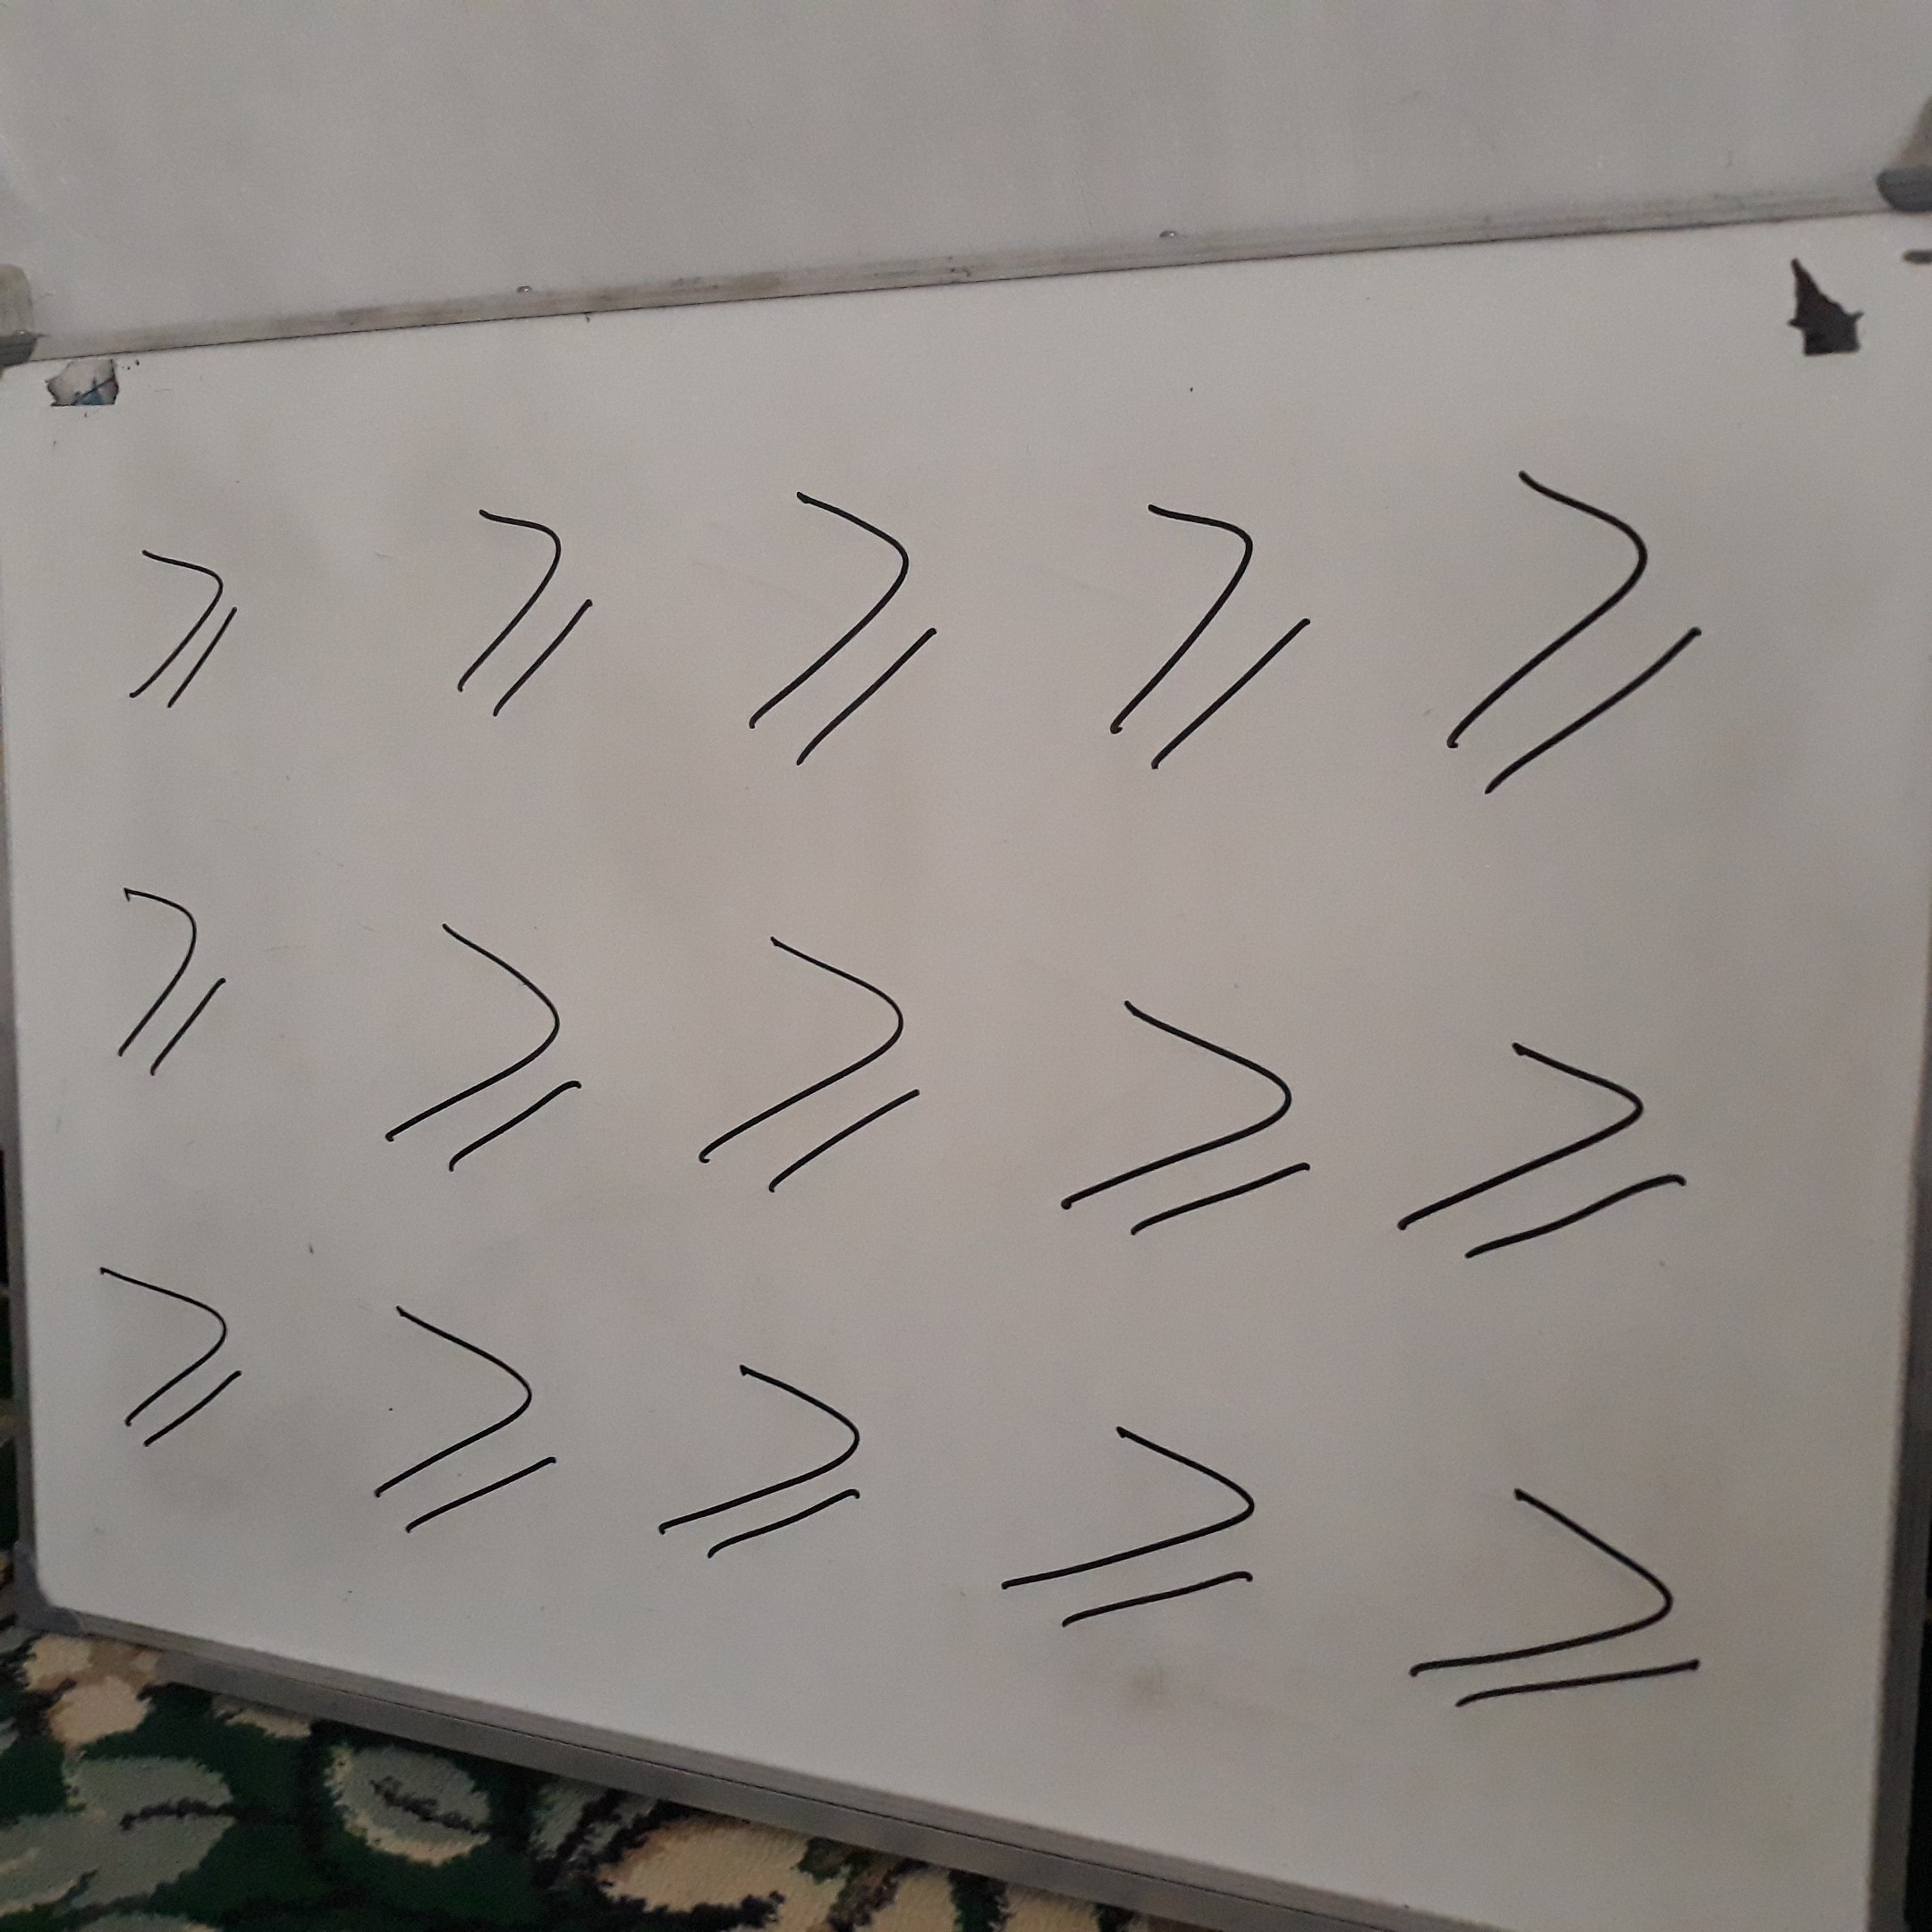 ⩾ ⩾ ⩾ ⩾ ⩾
⩾ ⩾ ⩾ ⩾ ⩾
⩾ ⩾ ⩾ ⩾ ⩾